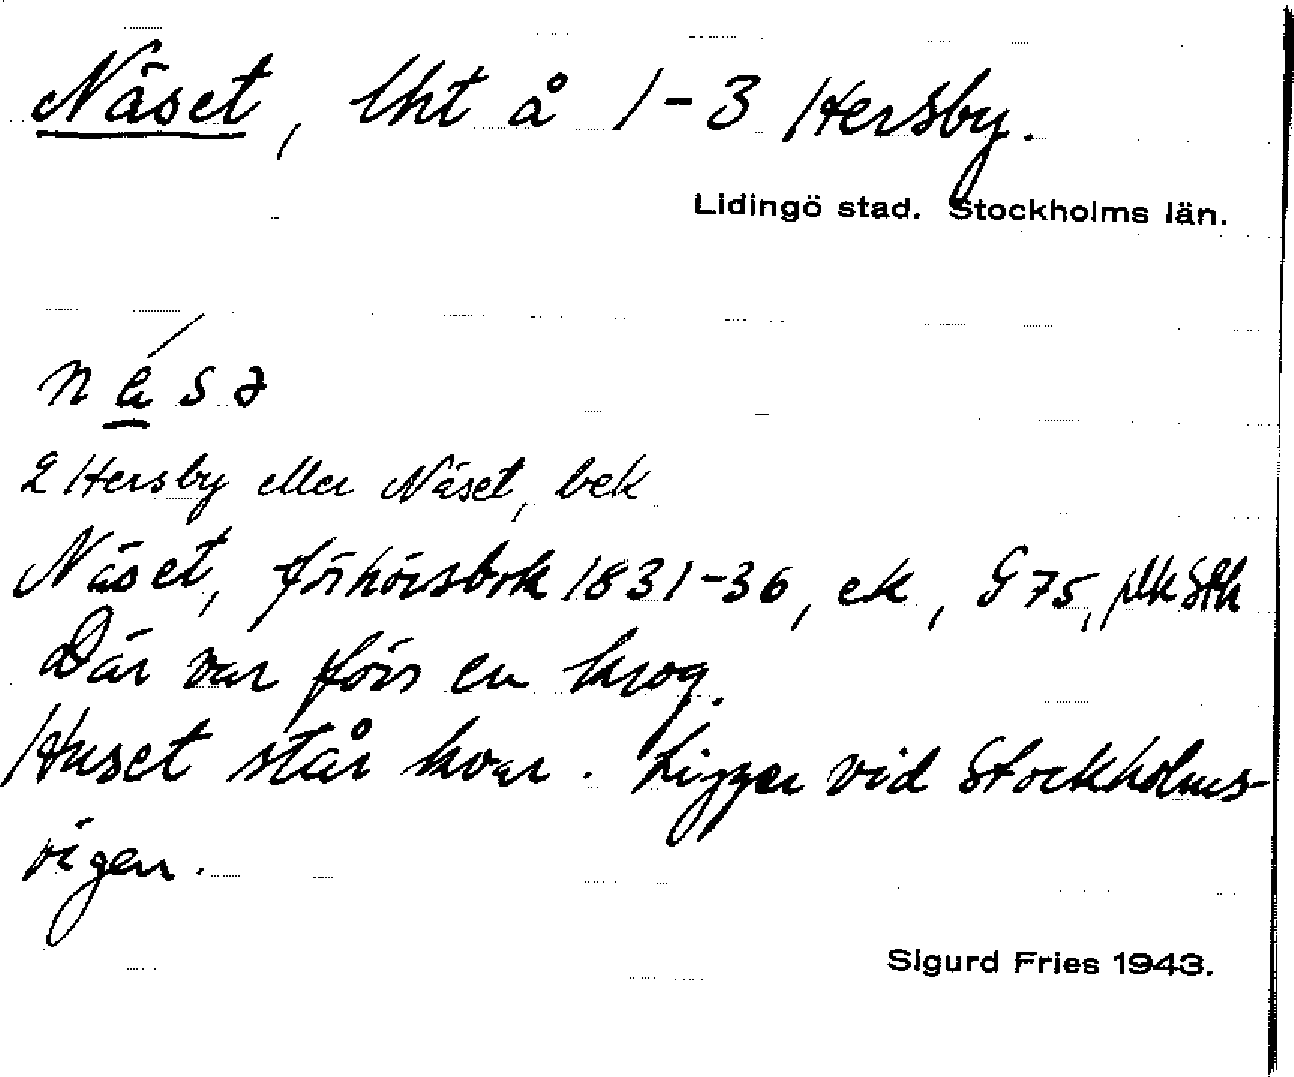 Näset, lht å 1-3 Hersby.
Lidingö stad. Stockholms län.
2 Hersby eller Näset, bek
Näset, förhörsbok 1831-36, ek, G 75,
Där var förr en krog.
Huset står kvar. Ligger vid Stockholms-
vägen.
Sigurd Fries 1943.